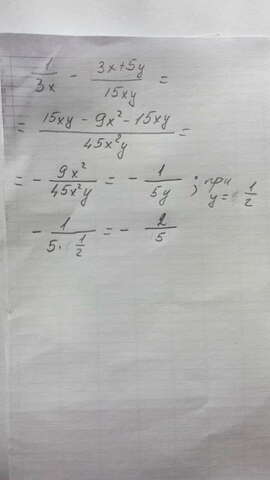 1/3x - (3x+5y)/15xy =
= (15xy - 9x² - 15xy)/45x²y =
= - 9x²/45x²y = - 1/5y ; при y = 1/2
- 1/(5 · 1/2) = - 2/5